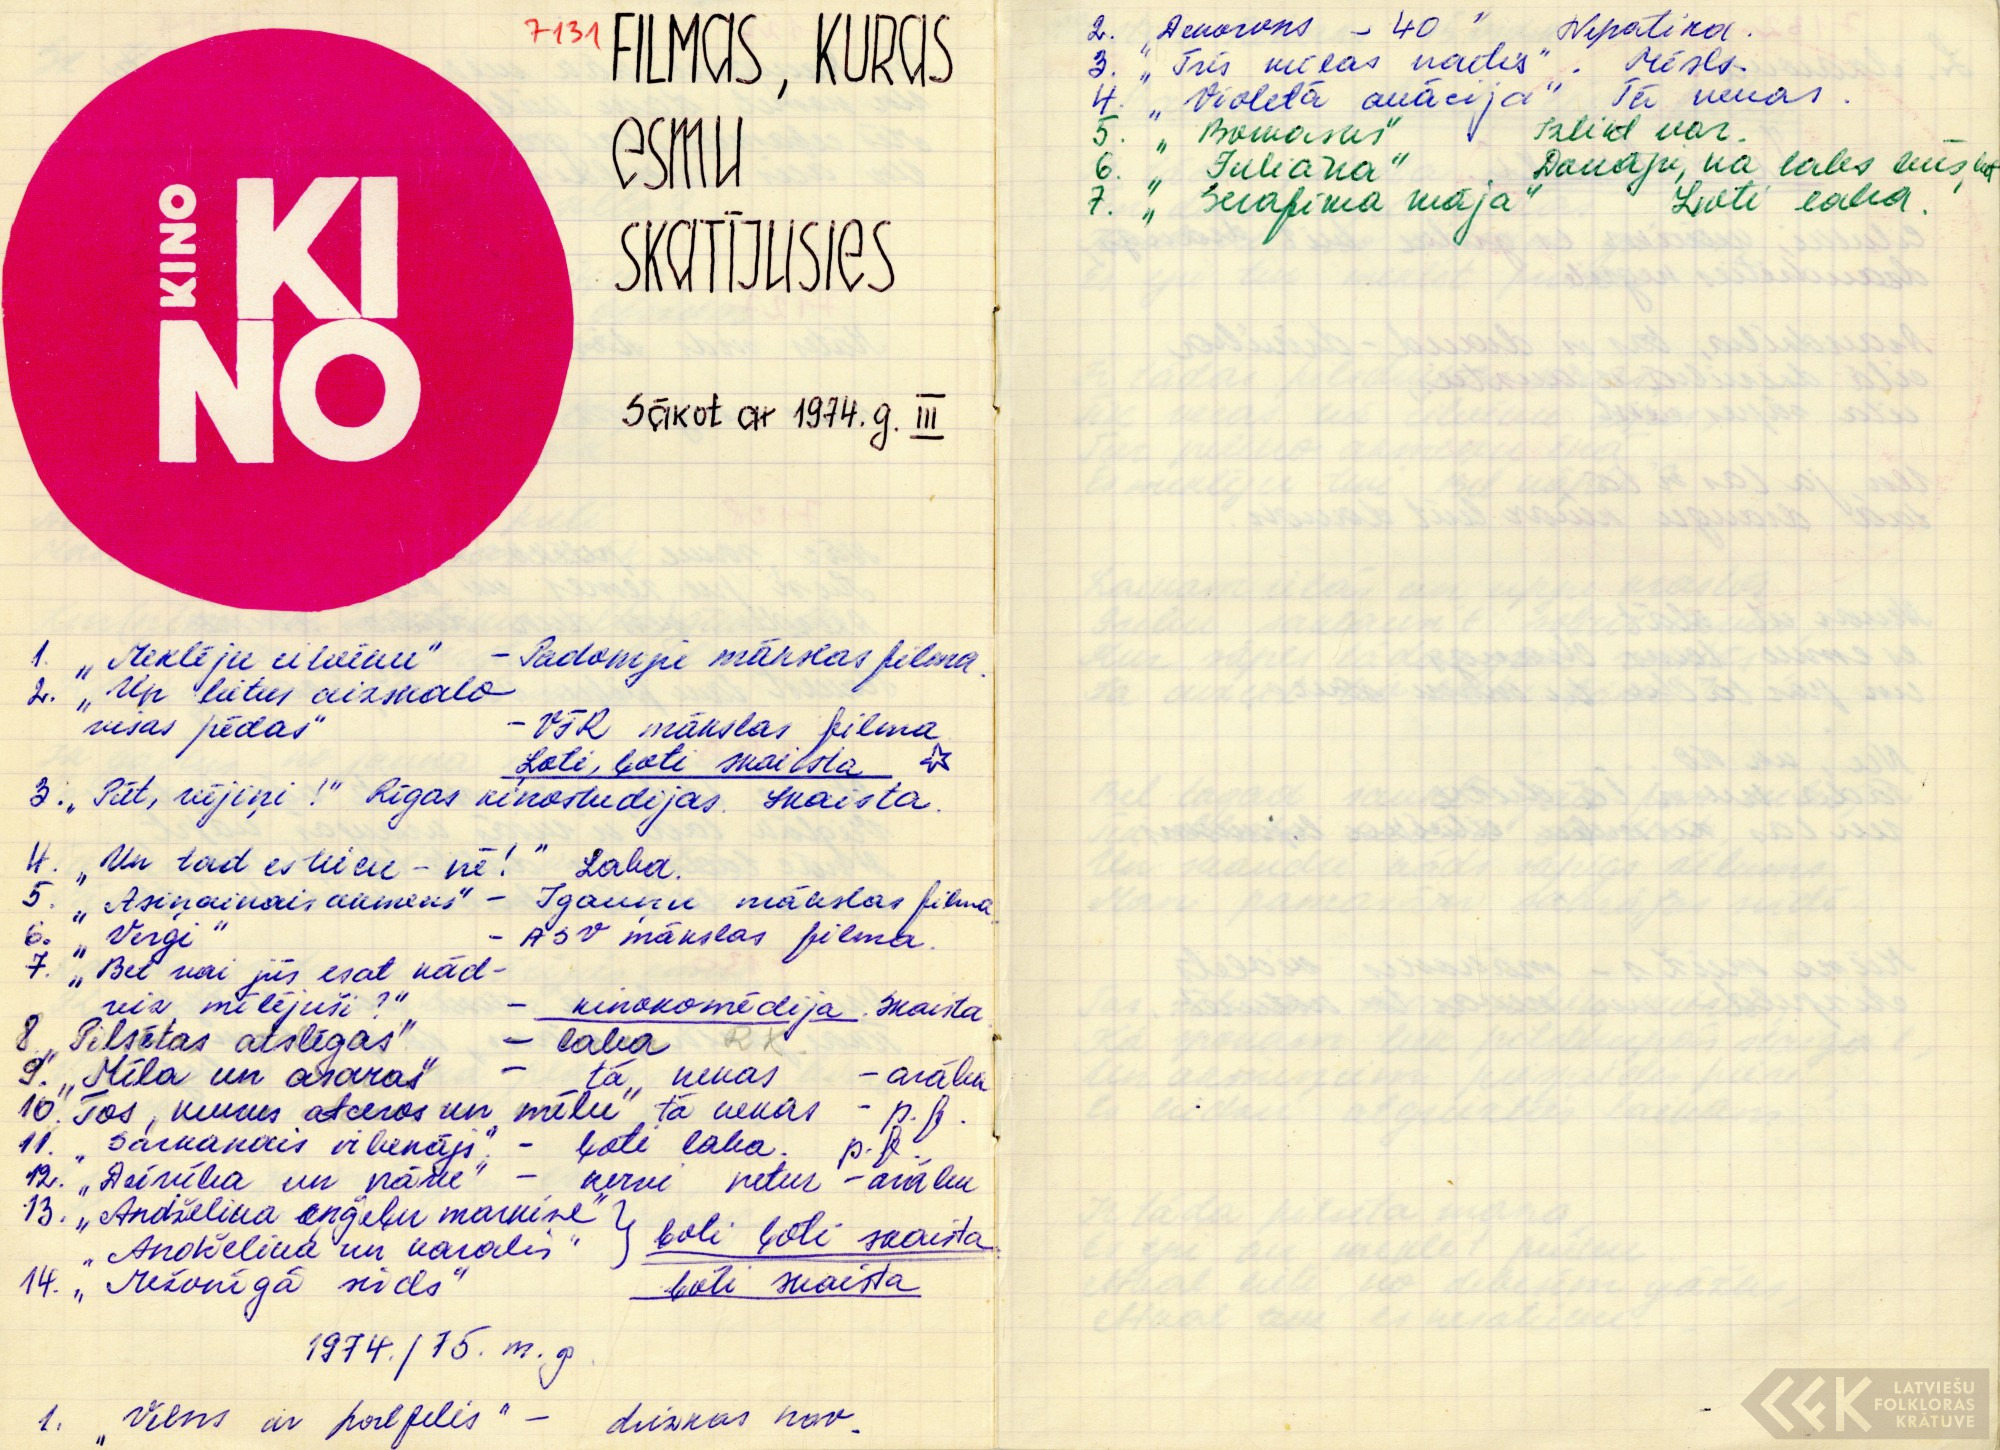 KINO
KI
NO
7131
FILMAS, KURAS
ESMU
SKATĪJUSIES
Sākot ar 1974.g. III
1. „Meklēju cilvēku" – Padomju mākslas filma.
2. „Un lietus aizskalo
visas pēdas" – VFR mākslas filma
Ļoti, ļoti skaista ☆
3. „Pūt, vējiņi!" Rīgas kinostudijas. Skaista.
4. „Un tad es teicu – nē!" Laba.
5. „Asiņainais akmens" – Igauņu mākslas filma
6. „Vergi" – ASV mākslas filma.
7. „Bet vai jūs esat kād-
reiz mīlējuši?" – kinokomēdija. Skaista
8 „Pilsētas atslēgas" – laba RK.
9. „Mīla un asaras" – tā nekas – arābu
10. „Tos, kurus atceros un mīlu" tā nekas – p.f.
11. „Sarkanais vilkenājs" – ļoti laba. p.f.
12. „Dzīvība un nāve" – nervi netur – arābu
13. „Andželika eņģeļu markīze"
„Andželika un karalis" } ļoti ļoti skaista
14. „Mežonīgā sirds" ļoti skaista
1974./75. m.g.
1. „Vilns ar portfelis" – drizkas nav.
2. „Dekorons – 40" Nepatika.
3. „Trīs mīlas naktis". Mēsls.
4. „Violetā anācija" Tā nekas.
5. „Bomasus" Izlikt var.
6. „Juliana" Domāju, ka labs būs, bet
7. „Serafima māja" Ļoti laba.
LATVIEŠU
FOLKLORAS
KRĀTUVE